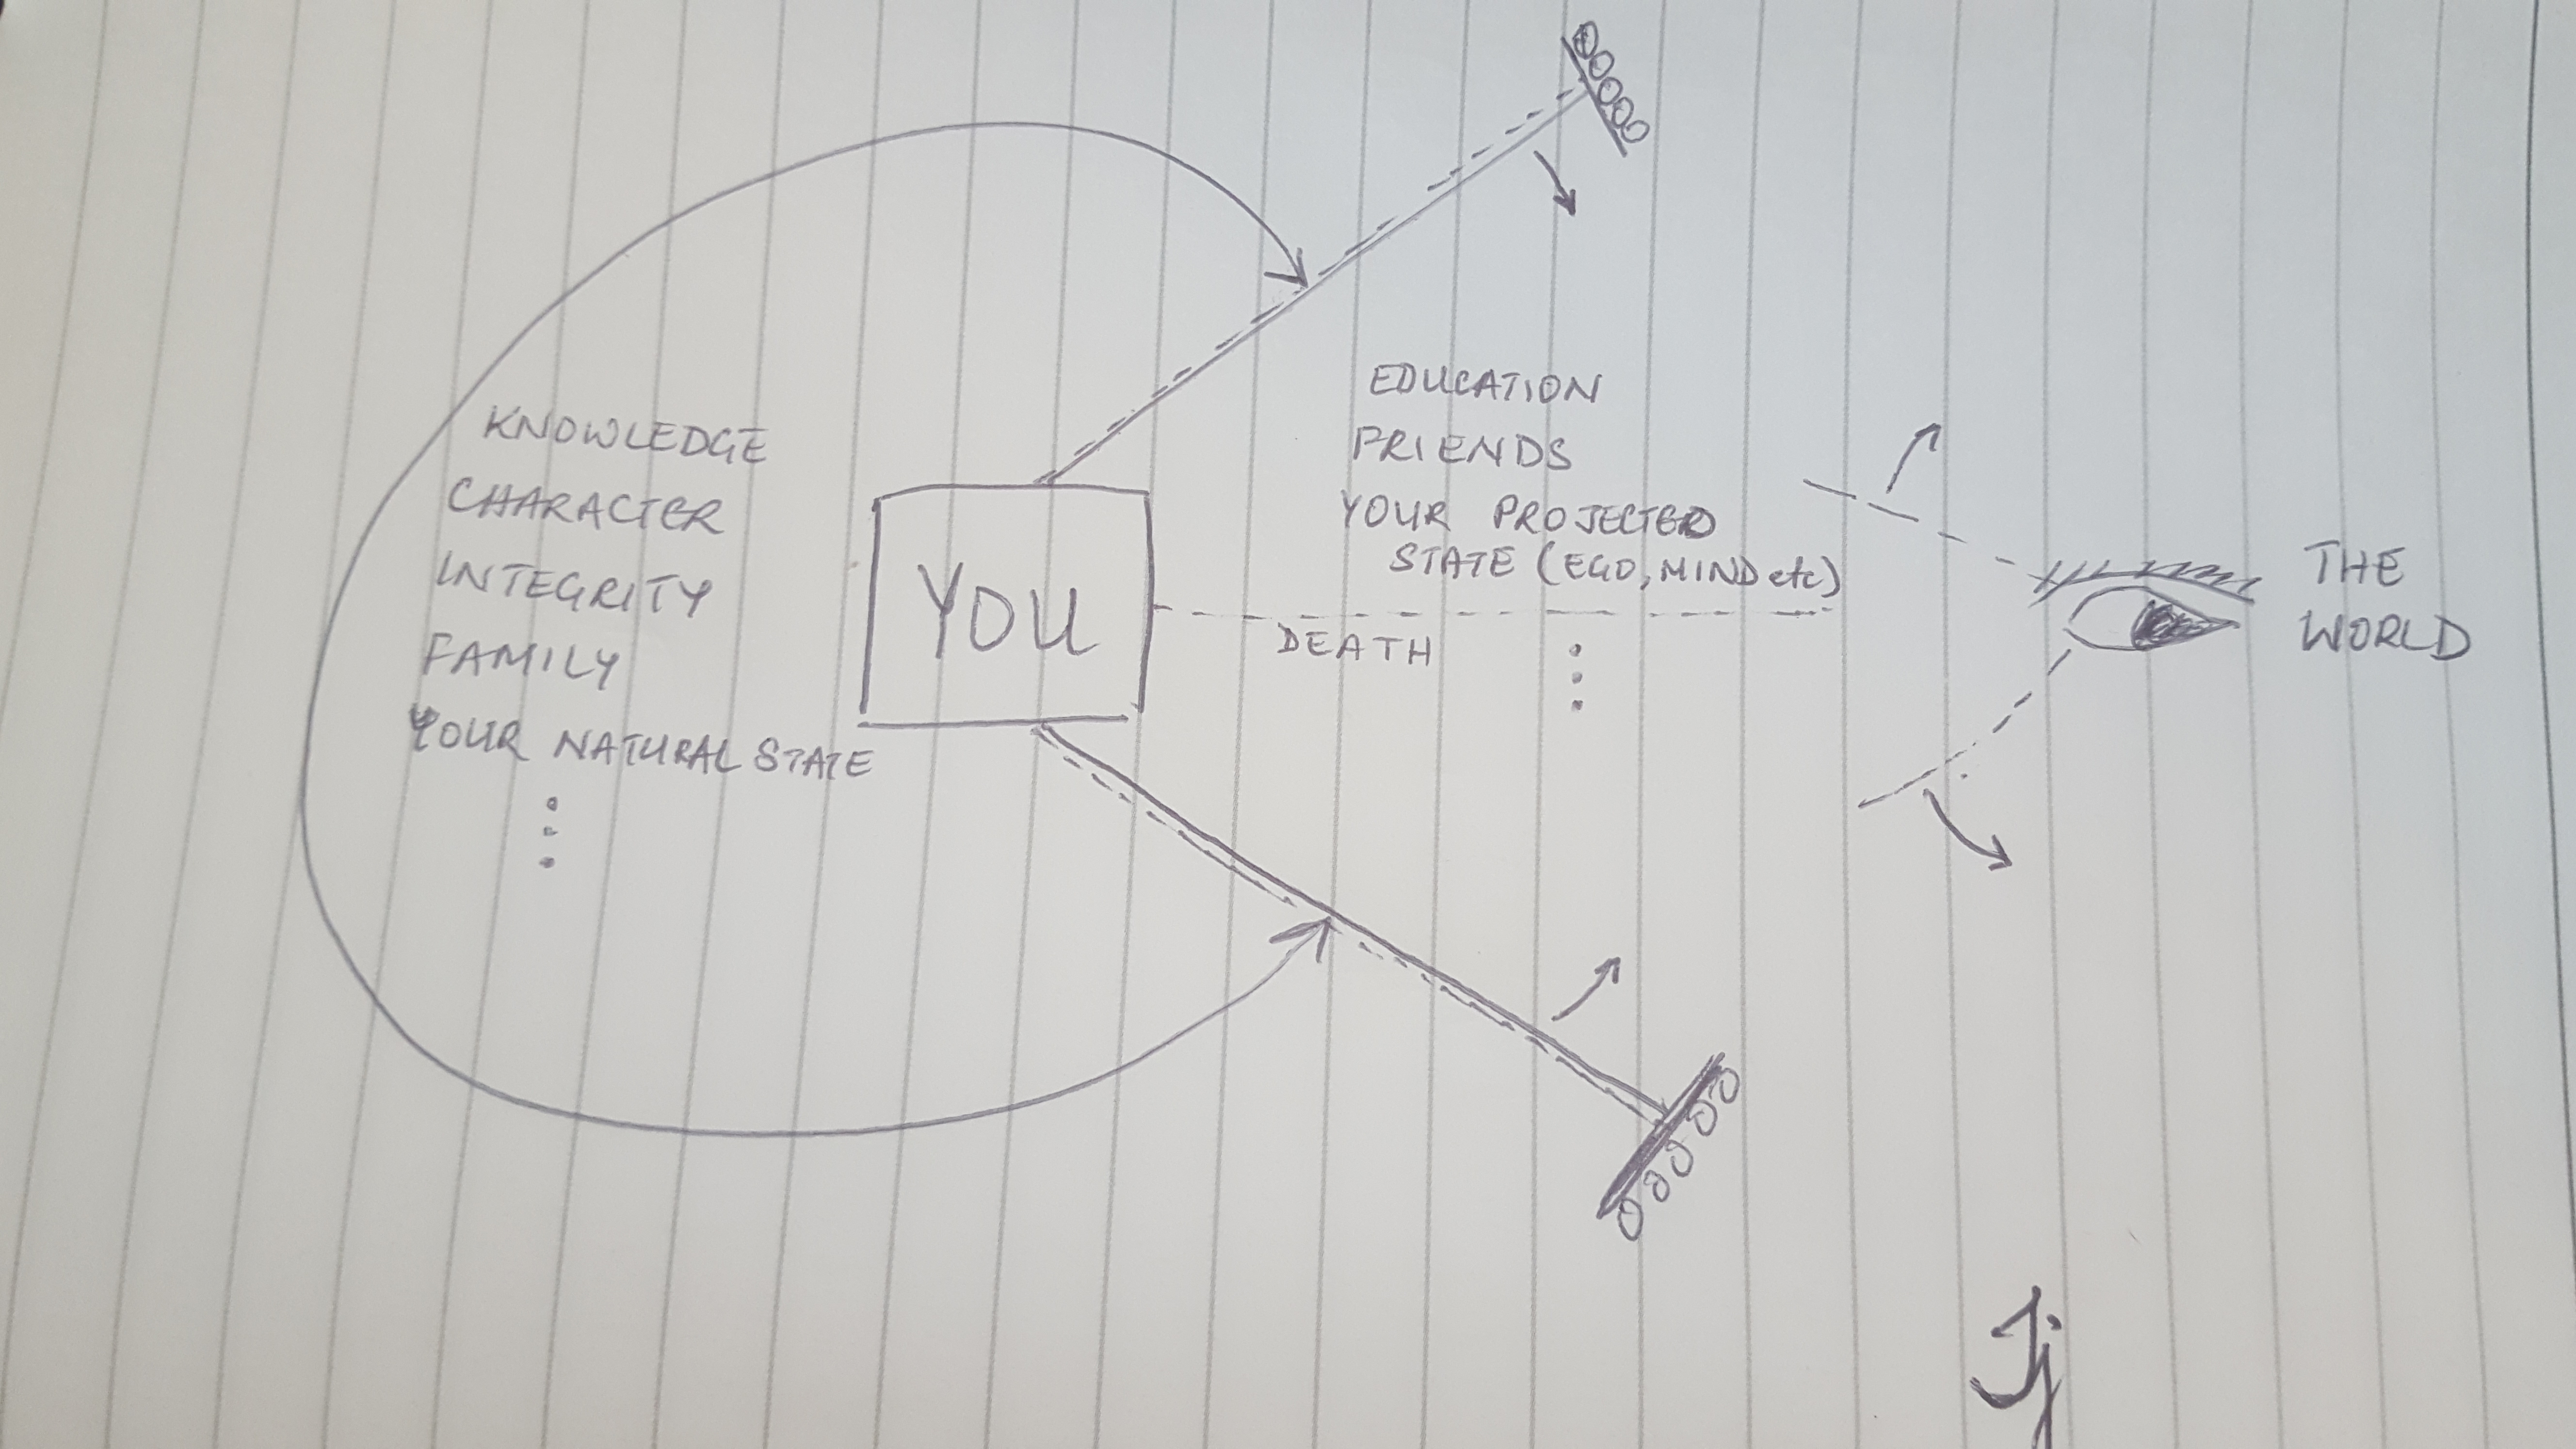 KNOWLEDGE
CHARACTER
INTEGRITY
FAMILY
YOUR NATURAL STATE
YOU
EDUCATION
FRIENDS
YOUR PROJECTED
STATE (EGO, MIND etc)
DEATH
THE
WORLD
Jj